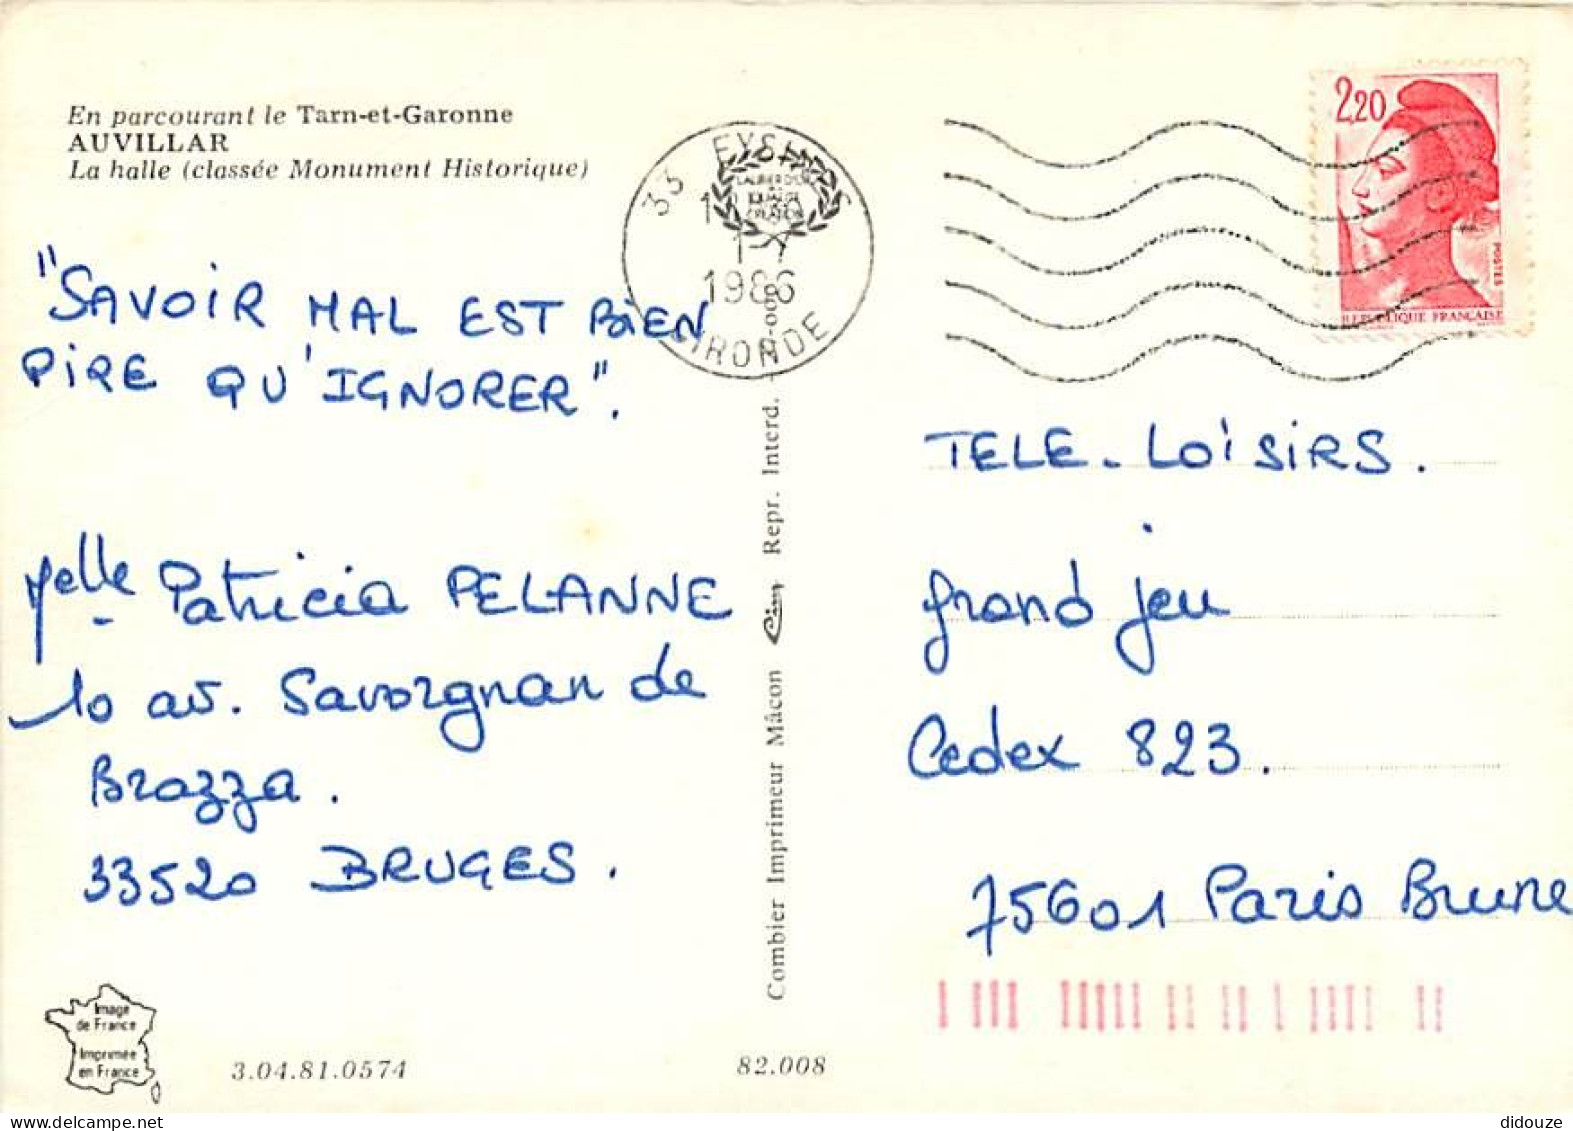 En parcourant le Tarn-et-Garonne
AUVILLAR
La halle (classée Monument Historique)
"SAVOIR MAL EST BIEN
PIRE QU'IGNORER".
Melle Patricia PELANNE
10 av. Savorgnan de
Brazza.
33520 BRUGES.
Image
de France
Imprimée
en France
3.04.81.0574
82.008
Combier Imprimeur Mâcon Cim Repr. Interd.
33 EYSINES
1-7
1986
GIRONDE
LAURIER D'OR
QUALITE
CREATION
2,20
POSTES
REPUBLIQUE FRANÇAISE
TELE-LOISIRS.
grand jeu
Cedex 823.
75601 Paris Brune
didouze